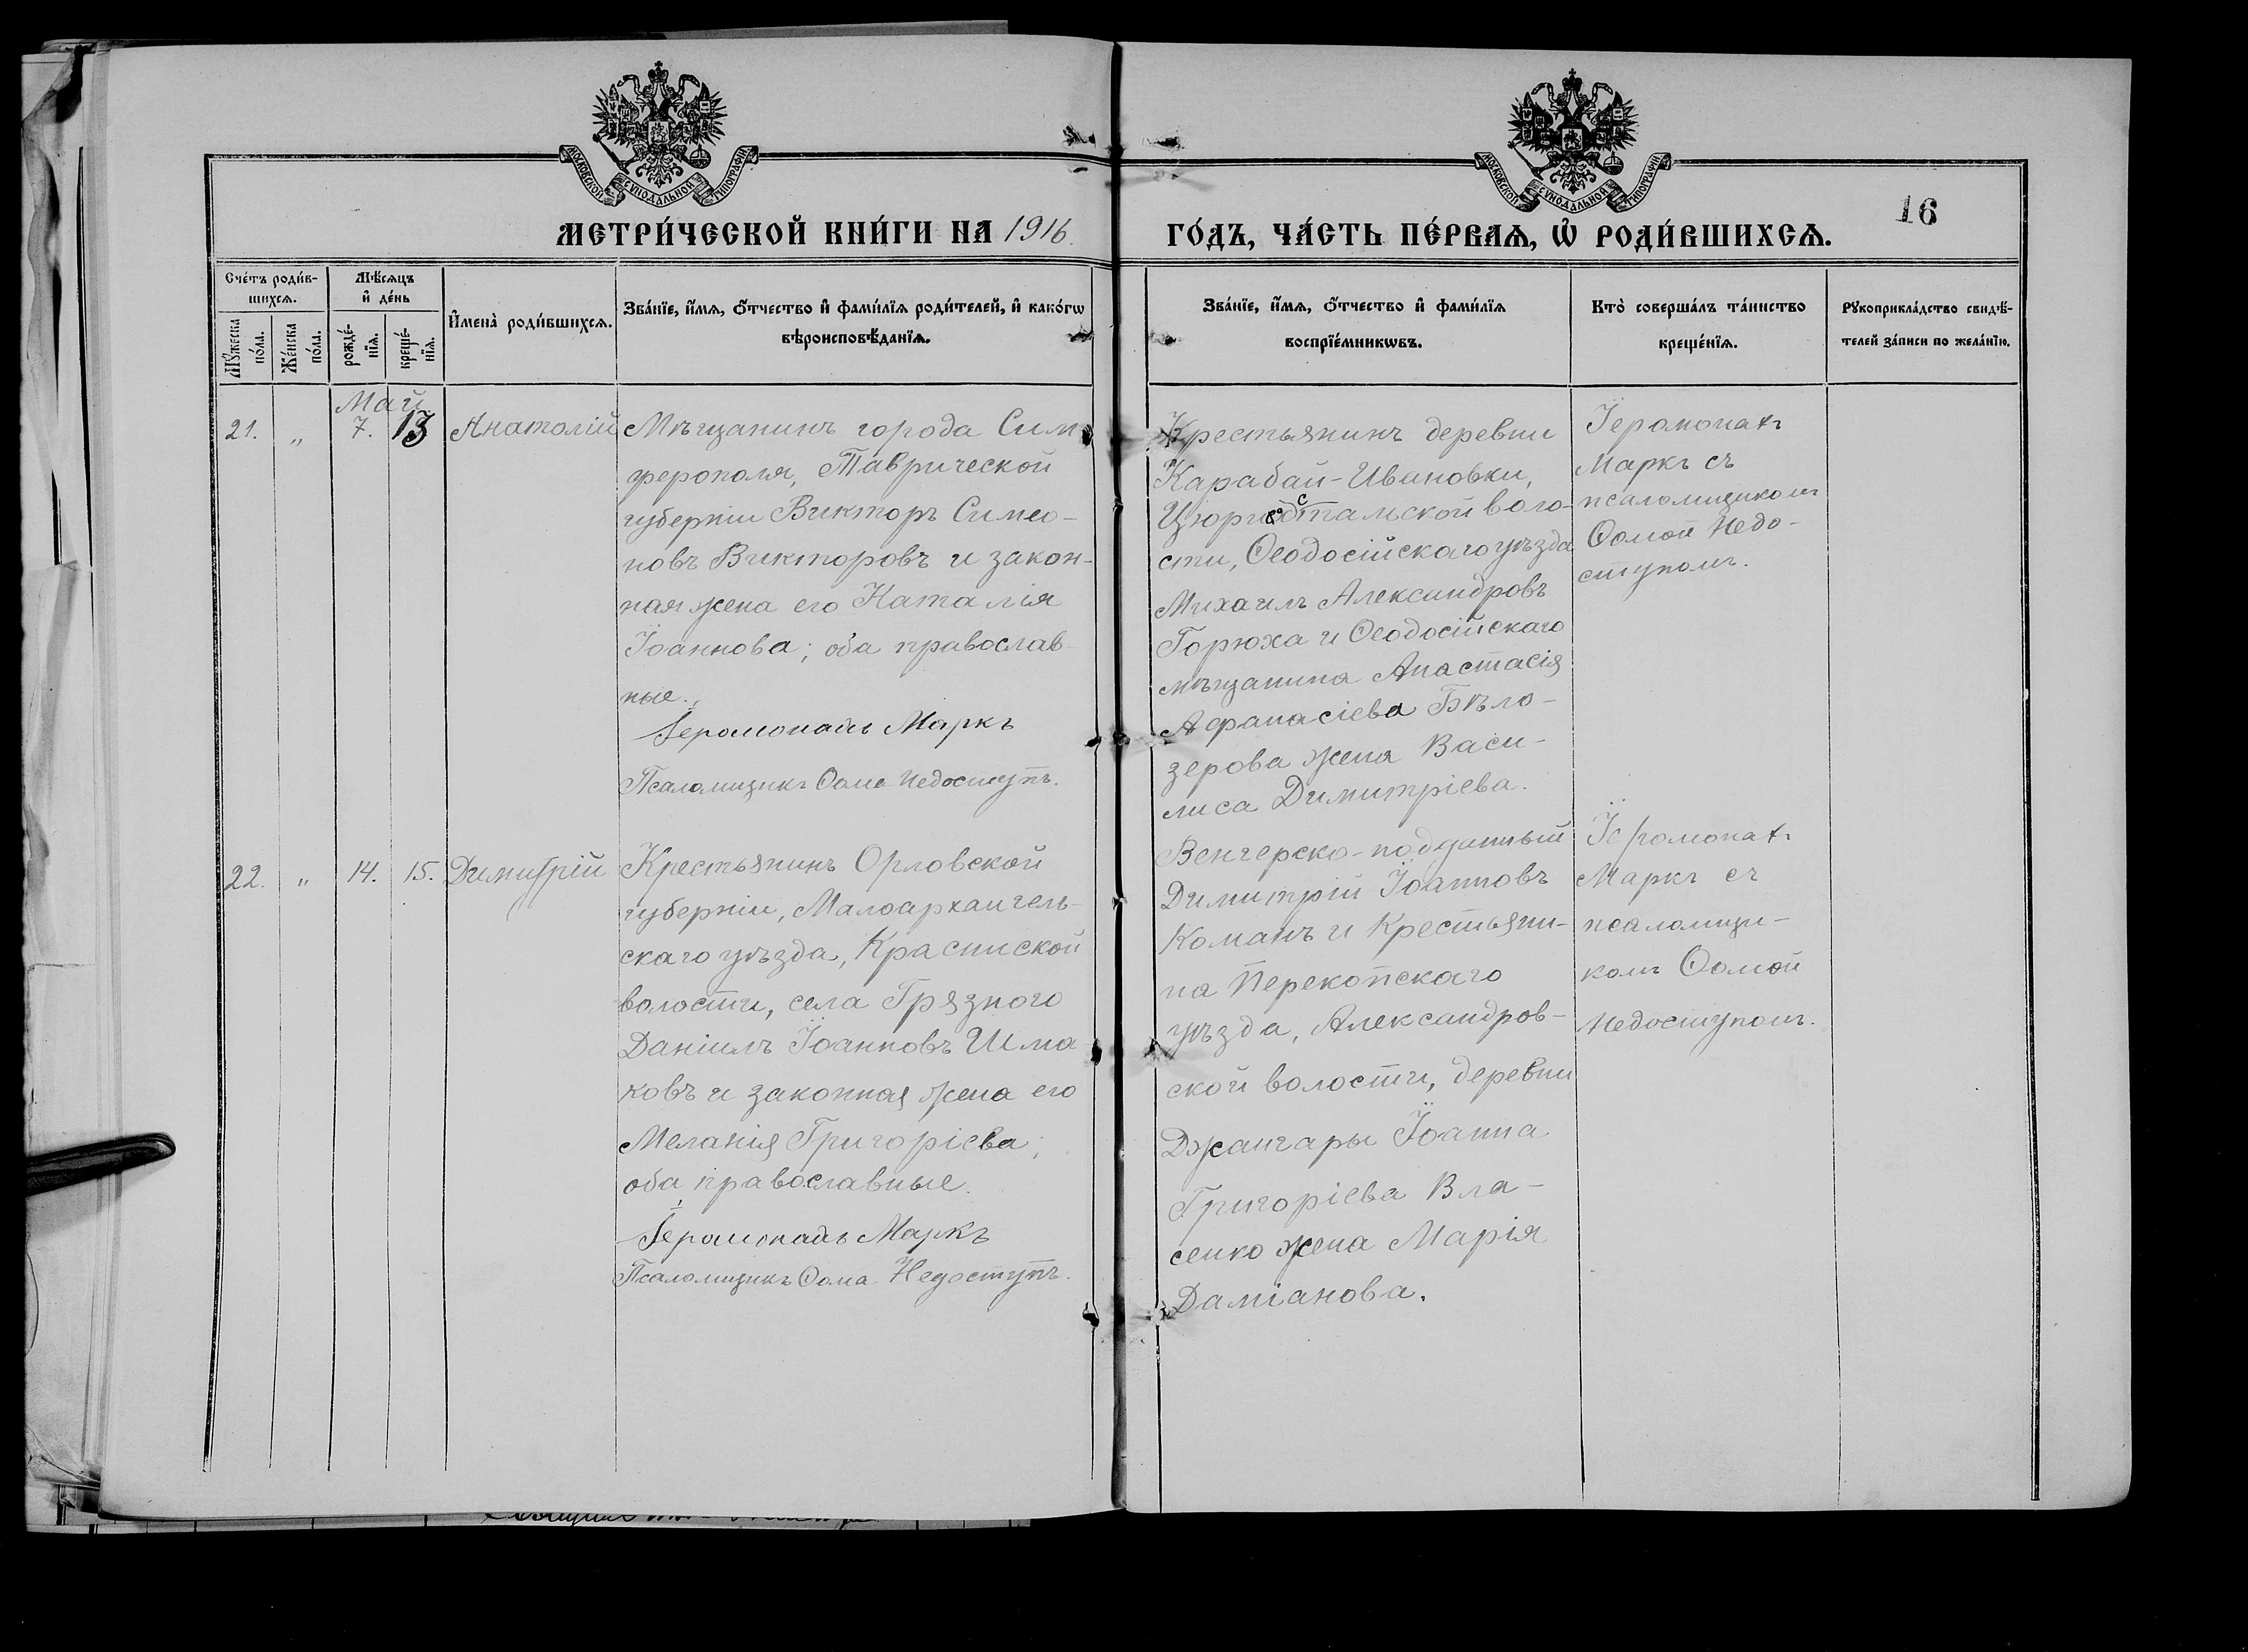 МОСКОВСКОЙ СѴНОДАЛЬНОЙ ТИПОГРАФІИ
МОСКОВСКОЙ СѴНОДАЛЬНОЙ ТИПОГРАФІИ
МЕТРИ́ЧЕСКОЙ КНИ́ГИ НА 1916.
ГО́ДЪ, ЧА́СТЬ ПЕ́РВАѦ, Ѽ РОДИ́ВШИХСѦ.
16
Сче́тъ роди́в-
шихсѧ.
Мѣ́сѧцъ
и҆ де́нь
Мꙋ́жеска
по́ла.
Же́нска
по́ла.
рожде́-
нїѧ.
креще́-
нїѧ.
И҆мена̀ роди́вшихсѧ.
Зва́нїе, и҆́мѧ, ѻ҆́тчество и҆ фами́лїѧ роди́телей, и҆ како́гѡ
вѣроисповѣ́данїѧ.
Зва́нїе, и҆́мѧ, ѻ҆́тчество и҆ фами́лїѧ
воспрїе́мникѡвъ.
Кто̀ соверша́лъ та́инство
креще́нїѧ.
Рꙋкоприкла́дство свидѣ́-
телей за́писи по жела́нїю.
Май
21. „ 7. 13 Анатолій
Мѣщанинъ города Сим
ферополя, Таврической
губерніи Викторъ Симео-
новъ Викторовъ и закон-
ная жена его Наталія
Іоаннова; оба православ
ные.
Іеромонахъ Маркъ
Псаломщикъ Ѳома Недоступъ.
Крестьянинъ деревни
Карабай-Ивановки,
Цюрихстальской воло-
сти, Ѳеодосійскаго уѣзда
Михаилъ Александровъ
Горюха и Ѳеодосійскаго
мѣщанина Анастасія
Аѳанасіева Бѣло-
зерова жена Васи-
лиса Димитріева.
Іеромонахъ
Маркъ съ
псаломщикомъ
Ѳомой Недо-
ступомъ.
22. „ 14. 15. Димитрій
Крестьянинъ Орловской
губерніи, Малоархангель-
скаго уѣзда, Краснинской
волости, села Грязного
Даніилъ Іоанновъ Шма
ковъ и законная жена его
Меланія Григоріева;
оба православные.
Іеромонахъ Маркъ
Псаломщикъ Ѳома Недоступъ.
Венгерско-подданный
Димитрій Іоанновъ
Команъ и крестьяни-
на Перекопскаго
уѣзда, Александров-
ской волости, деревни
Джангары Іоанна
Григоріева Вла-
сенко жена Марія
Даміанова.
Іеромонахъ
Маркъ съ
псаломщи-
комъ Ѳомой
Недоступомъ.